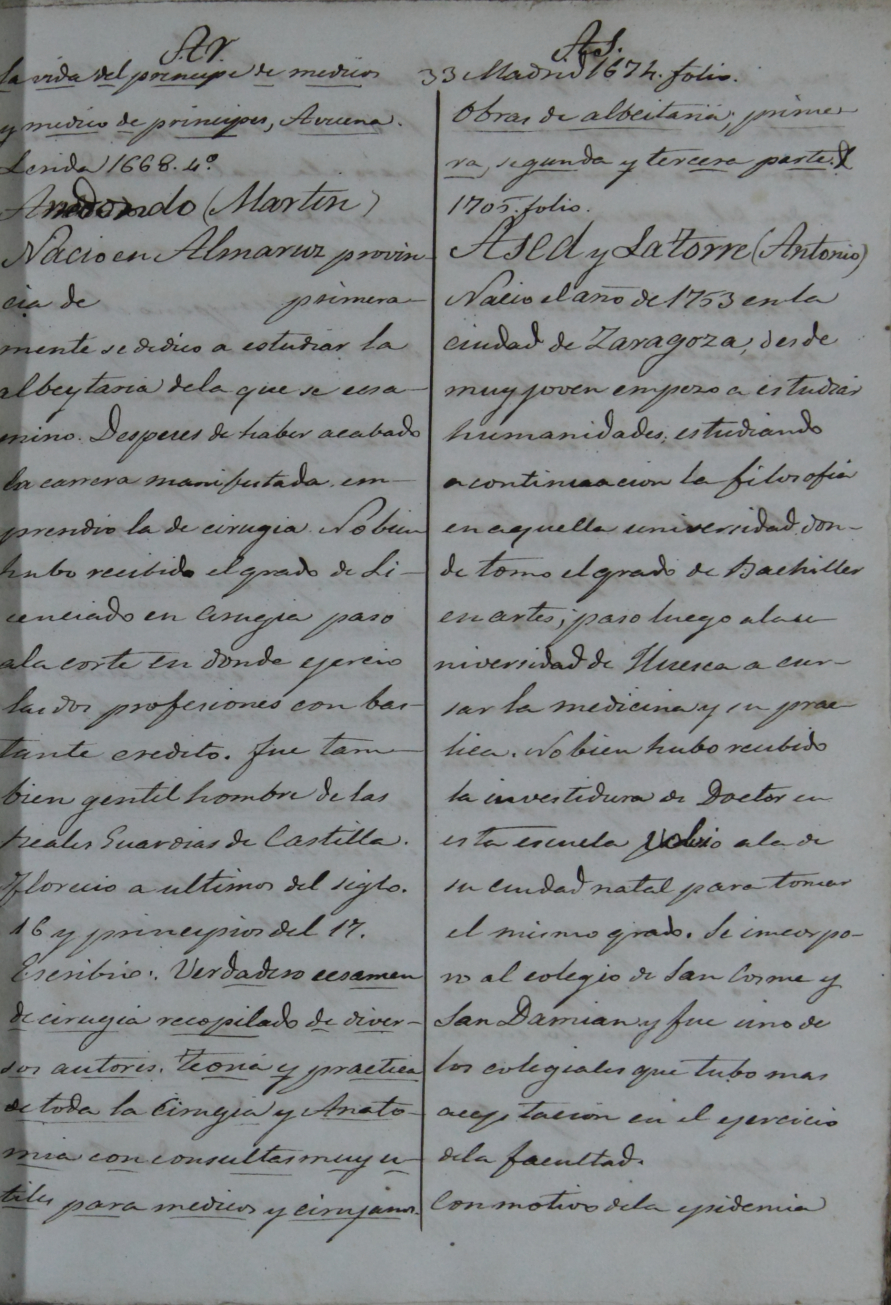 Ar.
la vida del principe de medicos
y medico de principes, Avicena.
Lerida 1668. 4º
Arredondo (Martin)
Nacio en Almaruz provin-
cia de primera-
mente se dedico a estudiar la
albeytaria dela que se ecsa-
mino. Despues de haber acabado
la carrera manifestada em-
prendio la de cirugia. No bien
hubo recibido el grado de Li-
cenciado en cirugia paso
ala corte en donde ejercio
las dos profesiones con bas-
tante credito. fue tam-
bien gentil hombre de las
Reales Guardias de Castilla.
Florecio a ultimos del siglo.
16 y principios del 17.
Escribio: Verdadero ecsamen
de cirugia recopilado de diver-
sos autores. Teoria y practica
de toda la Cirugia y Anato-
mia con consultas muy u-
tiles para medicos y cirujanos.
As.
33 Madrid 1674. folio.
Obras de albeitaria; prime-
ra, segunda y tercera parte.
1705. folio.
Ased y LaTorre (Antonio)
Nacio el año de 1753 en la
ciudad de Zaragoza, desde
muy joven empezo a estudiar
humanidades, estudiando
a continuacion la filosofia
en aquella universidad don-
de tomo el grado de Bachiller
en artes; paso luego ala u-
niversidad de Huesca a cur-
sar la medicina y su prac-
tica. No bien hubo recibido
la investidura de Doctor en
esta escuela volvio ala de
su ciudad natal para tomar
el mismo grado. Se incorpo-
ro al colegio de San Cosme y
San Damian y fue uno de
los colegiales que tubo mas
aceptacion en el ejercicio
dela facultad.
Con motivo dela epidemia